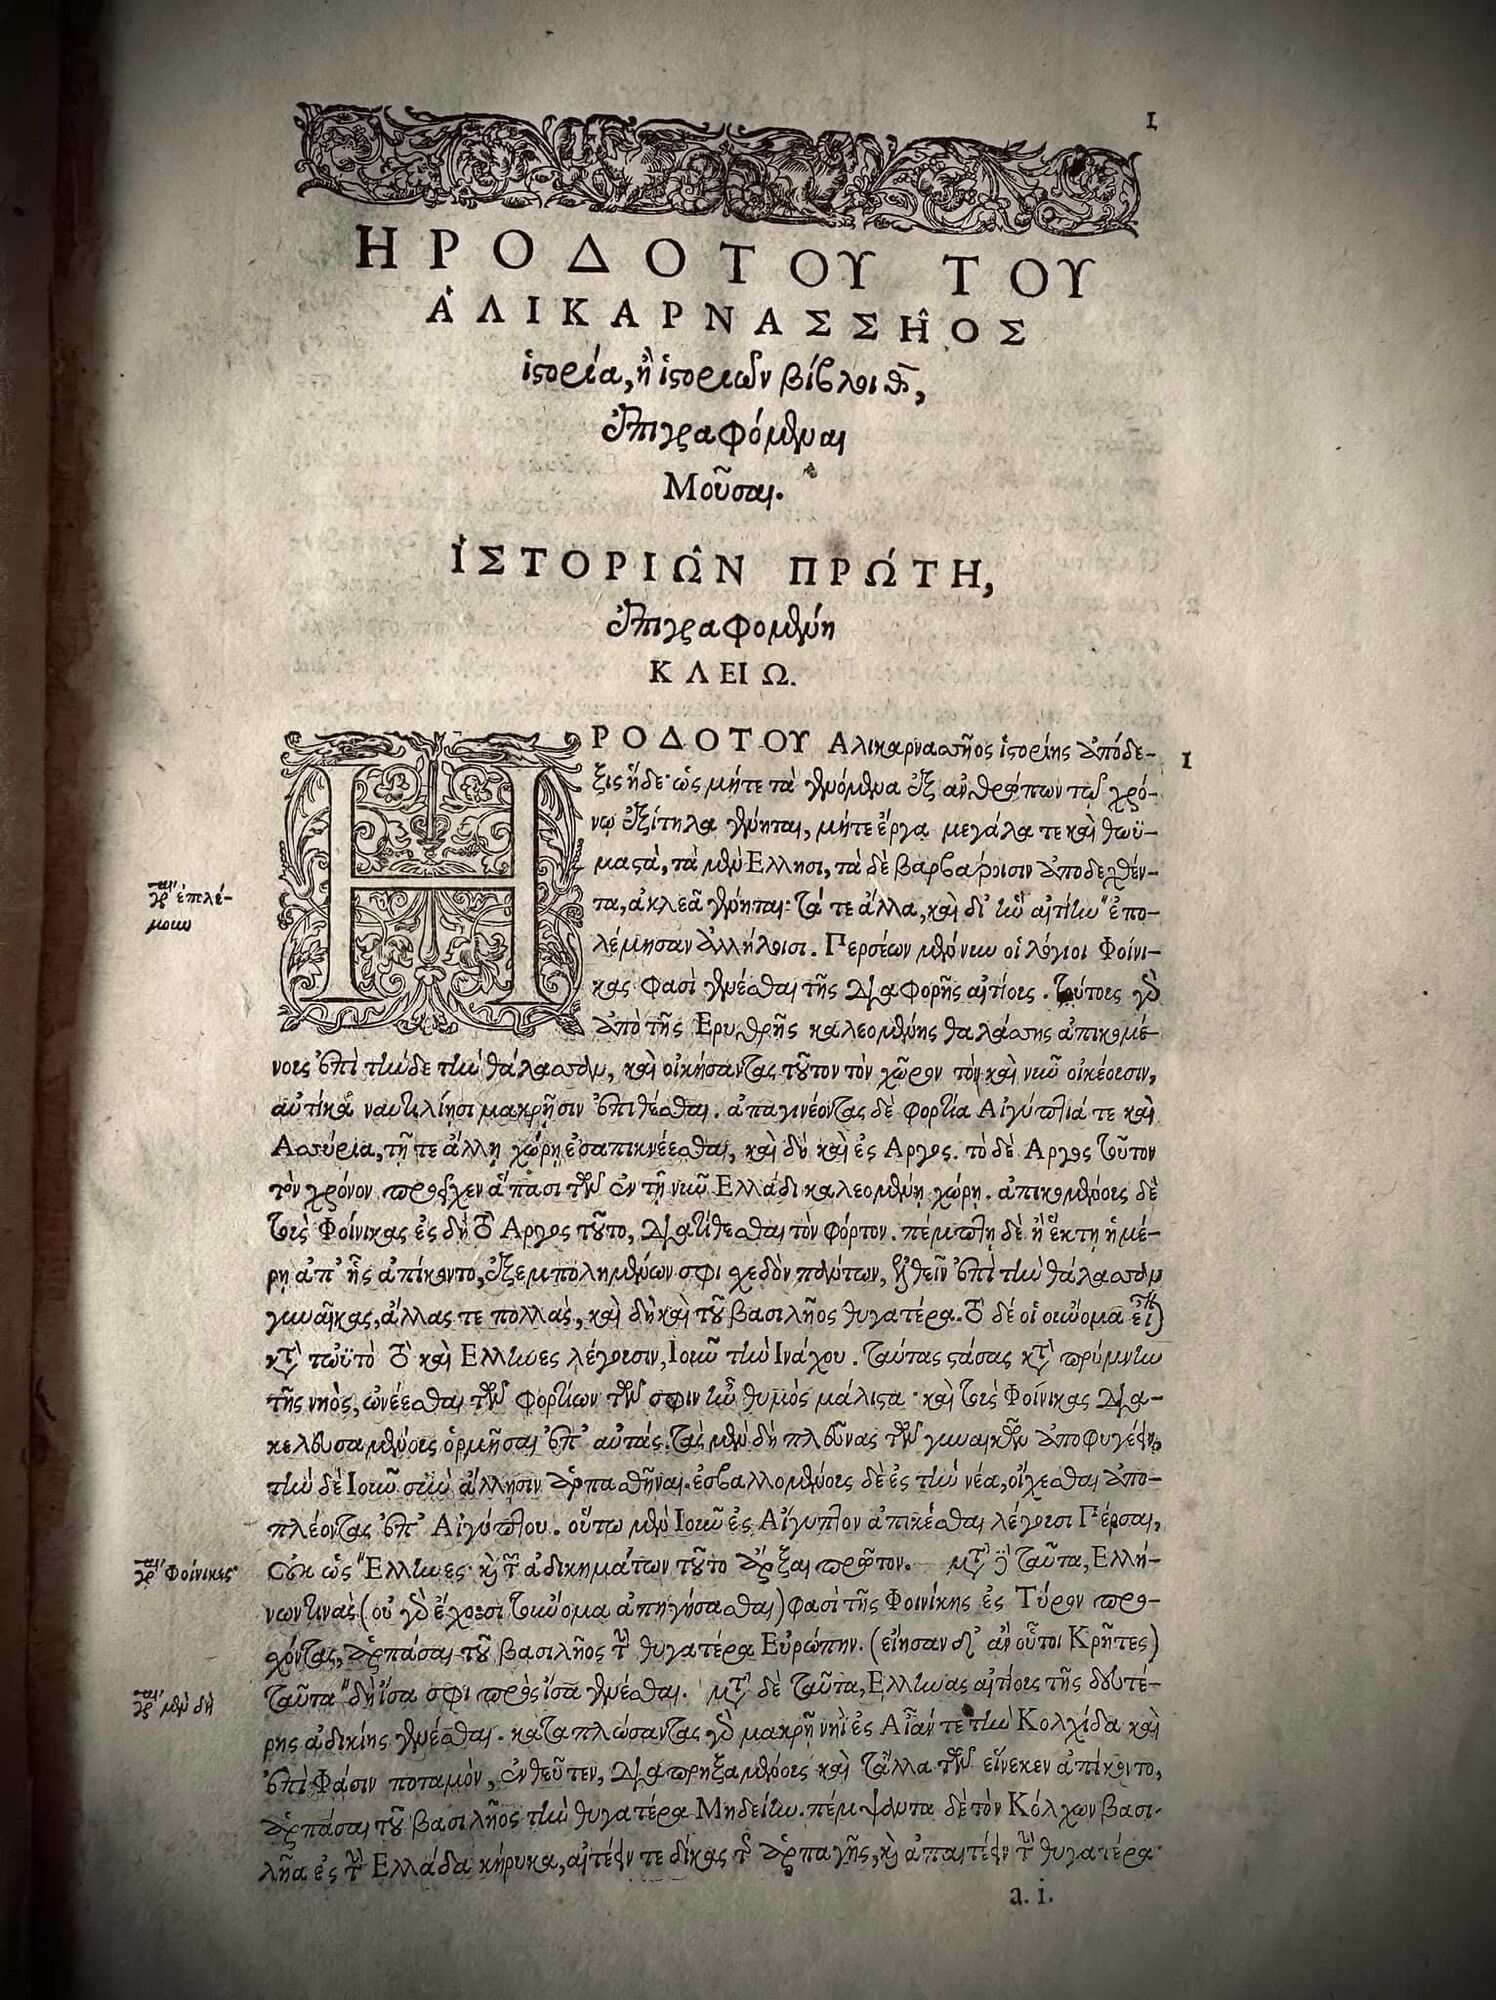 1
ΗΡΟΔΟΤΟΥ ΤΟΥ
ἉΛΙΚΑΡΝΑΣΣΗ͂ΟΣ
ἱστορία, ἢ ἱστοριῶν βίβλοι θ̄,
ἐπιγραφόμεναι
Μοῦσαι.
ἹΣΤΟΡΙΩ͂Ν ΠΡΏΤΗ,
ἐπιγραφομένη
ΚΛΕΙΩ.
ΗΡΟΔΟΤΟΥ Αλικαρνασσῆος ἱστορίης ἀπόδε-
1
ξις ἥδε· ὡς μήτε τὰ γενόμενα ἐξ ἀνθρώπων τῷ χρό-
νῳ ἐξίτηλα γένηται, μήτε ἔργα μεγάλα τε καὶ θωϋ-
μαστὰ, τὰ μὲν Ελλησι, τὰ δὲ βαρβάροισιν ἀποδεχθέν-
τα, ἀκλεᾶ γένηται· τά τε ἄλλα, καὶ δι' ἣν αἰτίην " ἐπο-
γρ. καὶ ἐπλέ-
μουν
λέμησαν ἀλλήλοισι. Περσέων μέν νυν οἱ λόγιοι Φοίνι-
κας φασὶ γενέσθαι τῆς διαφορῆς αἰτίους. τούτους γὰρ
ἀπὸ τῆς Ερυθρῆς καλεομένης θαλάσσης ἀπικομέ-
νους ἐπὶ τήνδε τὴν θάλασσαν, καὶ οἰκήσαντας τοῦτον τὸν χῶρον τὸν καὶ νῦν οἰκέουσιν,
αὐτίκα ναυτιλίῃσι μακρῇσιν ἐπιθέσθαι. ἀπαγινέοντας δὲ φορτία Αἰγύπτιά τε καὶ
Ασσύρια, τῇ τε ἄλλῃ χώρῃ ἐσαπικνέεσθαι, καὶ δὴ καὶ ἐς Αργος. τὸ δὲ Αργος τοῦτον
τὸν χρόνον προεῖχεν ἅπασι τῶν ἐν τῇ νῦν Ελλάδι καλεομένῃ χώρῃ. ἀπικομένους δὲ
τοὺς Φοίνικας ἐς δὴ τὸ Αργος τοῦτο, διατίθεσθαι τὸν φόρτον. πέμπτῃ δὲ ἢ ἕκτῃ ἡμέ-
ρῃ ἀπ' ἧς ἀπίκοντο, ἐξεμπολημένων σφι σχεδὸν πάντων, ἐλθεῖν ἐπὶ τὴν θάλασσαν
γυναῖκας, ἄλλας τε πολλὰς, καὶ δὴ καὶ τοῦ βασιλῆος θυγατέρα. τὸ δέ οἱ οὔνομα εἶναι
κατὰ τωϋτὸ τὸ καὶ Ελληνες λέγουσιν, Ιοῦν τὴν Ινάχου. ταύτας στάσας κατὰ πρύμνην
τῆς νηὸς, ὠνέεσθαι τῶν φορτίων τῶν σφιν ἦν θυμὸς μάλιστα· καὶ τοὺς Φοίνικας δια-
κελευσαμένους ὁρμῆσαι ἐπ' αὐτάς. τὰς μὲν δὴ πλεῦνας τῶν γυναικῶν ἀποφυγέειν,
τὴν δὲ Ιοῦν σὺν ἄλλησιν ἁρπασθῆναι. ἐσβαλλομένους δὲ ἐς τὴν νέα, οἴχεσθαι ἀπο-
πλέοντας ἐπ' Αἰγύπτου. οὕτω μὲν Ιοῦν ἐς Αἴγυπτον ἀπικέσθαι λέγουσι Πέρσαι,
γρ. καὶ Φοίνικες
οὐκ ὡς "Ελληνες· καὶ τῶν ἀδικημάτων τοῦτο ἄρξαι πρῶτον. μετὰ δὲ ταῦτα, Ελλή-
νων τινὰς (οὐ γὰρ ἔχουσι τοὔνομα ἀπηγήσασθαι) φασὶ τῆς Φοινίκης ἐς Τύρον προς-
χόντας, ἁρπάσαι τοῦ βασιλῆος τὴν θυγατέρα Εὐρώπην. (εἴησαν δ' ἂν οὗτοι Κρῆτες)
γρ. καὶ μὲν δὴ
ταῦτα " δὴ ἴσα σφι πρὸς ἴσα γενέσθαι. μετὰ δὲ ταῦτα, Ελληνας αἰτίους τῆς δευτέ-
ρης ἀδικίης γενέσθαι. καταπλώσαντας γὰρ μακρῇ νηῒ ἐς Αἶάν τε τὴν Κολχίδα καὶ
ἐπὶ Φάσιν ποταμὸν, ἐνθεῦτεν, διαπρηξαμένους καὶ τἄλλα τῶν εἵνεκεν ἀπίκοντο,
ἁρπάσαι τοῦ βασιλῆος τὴν θυγατέρα Μηδείην. πέμψαντα δὲ τὸν Κόλχων βασι-
λῆα ἐς τὴν Ελλάδα κήρυκα, αἰτέειν τε δίκας τῆς ἁρπαγῆς, καὶ ἀπαιτέειν τὴν θυγατέρα·
a. i.